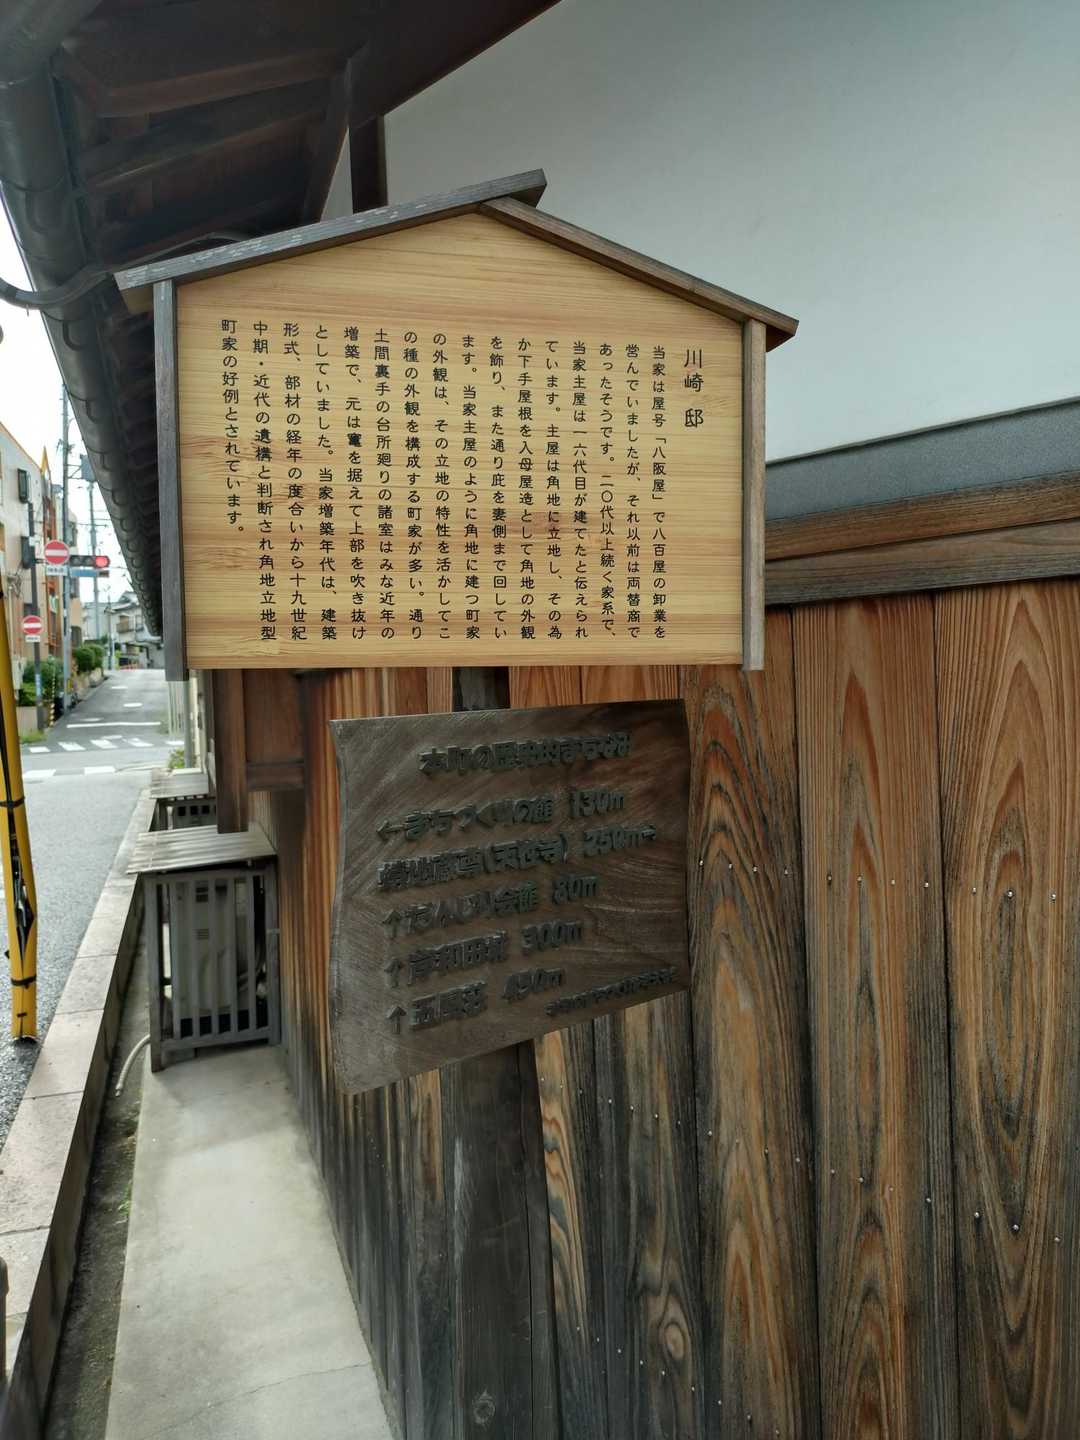 川崎 邸
当家は屋号「八阪屋」で八百屋の卸業を
営んでいましたが、それ以前は両替商で
あったそうです。二〇代以上続く家系で、
当家主屋は一六代目が建てたと伝えられ
ています。主屋は角地に立地し、その為
か下手屋根を入母屋造として角地の外観
を飾り、また通り庇を妻側まで回してい
ます。当家主屋のように角地に建つ町家
の外観は、その立地の特性を活かしてこ
の種の外観を構成する町家が多い。通り
土間裏手の台所廻りの諸室はみな近年の
増築で、元は竃を据えて上部を吹き抜け
としていました。当家増築年代は、建築
形式、部材の経年の度合いから十九世紀
中期・近代の遺構と判断され角地立地型
町家の好例とされています。
本町の歴史的まちなみ
←まちづくりの館 130m
蛸地蔵尊(天性寺) 250m→
↑だんじり会館 80m
↑岸和田城 300m
↑五風荘 490m